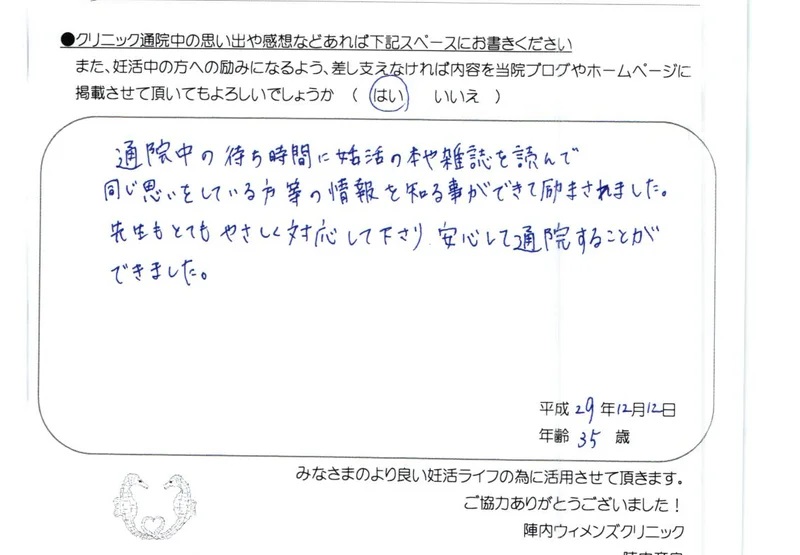 ●クリニック通院中の思い出や感想などあれば下記スペースにお書きください
また、妊活中の方への励みになるよう、差し支えなければ内容を当院ブログやホームページに
掲載させて頂いてもよろしいでしょうか ( はい いいえ )
通院中の待ち時間に妊活の本や雑誌を読んで
同じ思いをしている方等の情報を知る事ができて励まされました。
先生もとてもやさしく対応して下さり、安心して通院することが
できました。
平成 29 年12月12日
年齢 35 歳
みなさまのより良い妊活ライフの為に活用させて頂きます。
ご協力ありがとうございました!
陣内ウィメンズクリニック